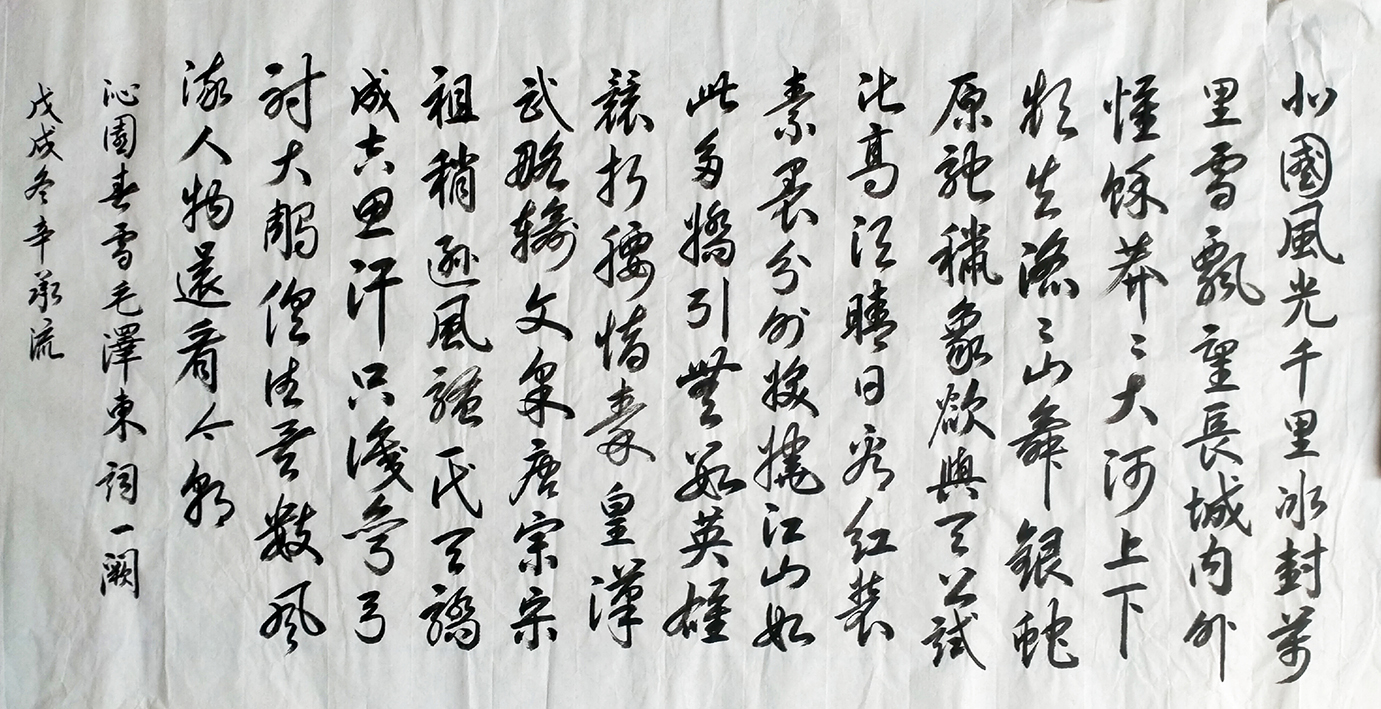 北國風光千里冰封萬
里雪飄望長城内外
惟餘莽〻大河上下
頓失滔〻山舞銀蛇
原馳蠟象欲與天公試
比高須晴日看紅裝
素裹分外妖嬈江山如
此多嬌引無數英雄
競折腰惜秦皇漢
武略輸文采唐宗宋
祖稍遜風騷一代天驕
成吉思汗只識彎弓
射大雕俱往矣數風
流人物還看今朝
沁園春雪毛澤東詞一闋
戊戌冬辛承流